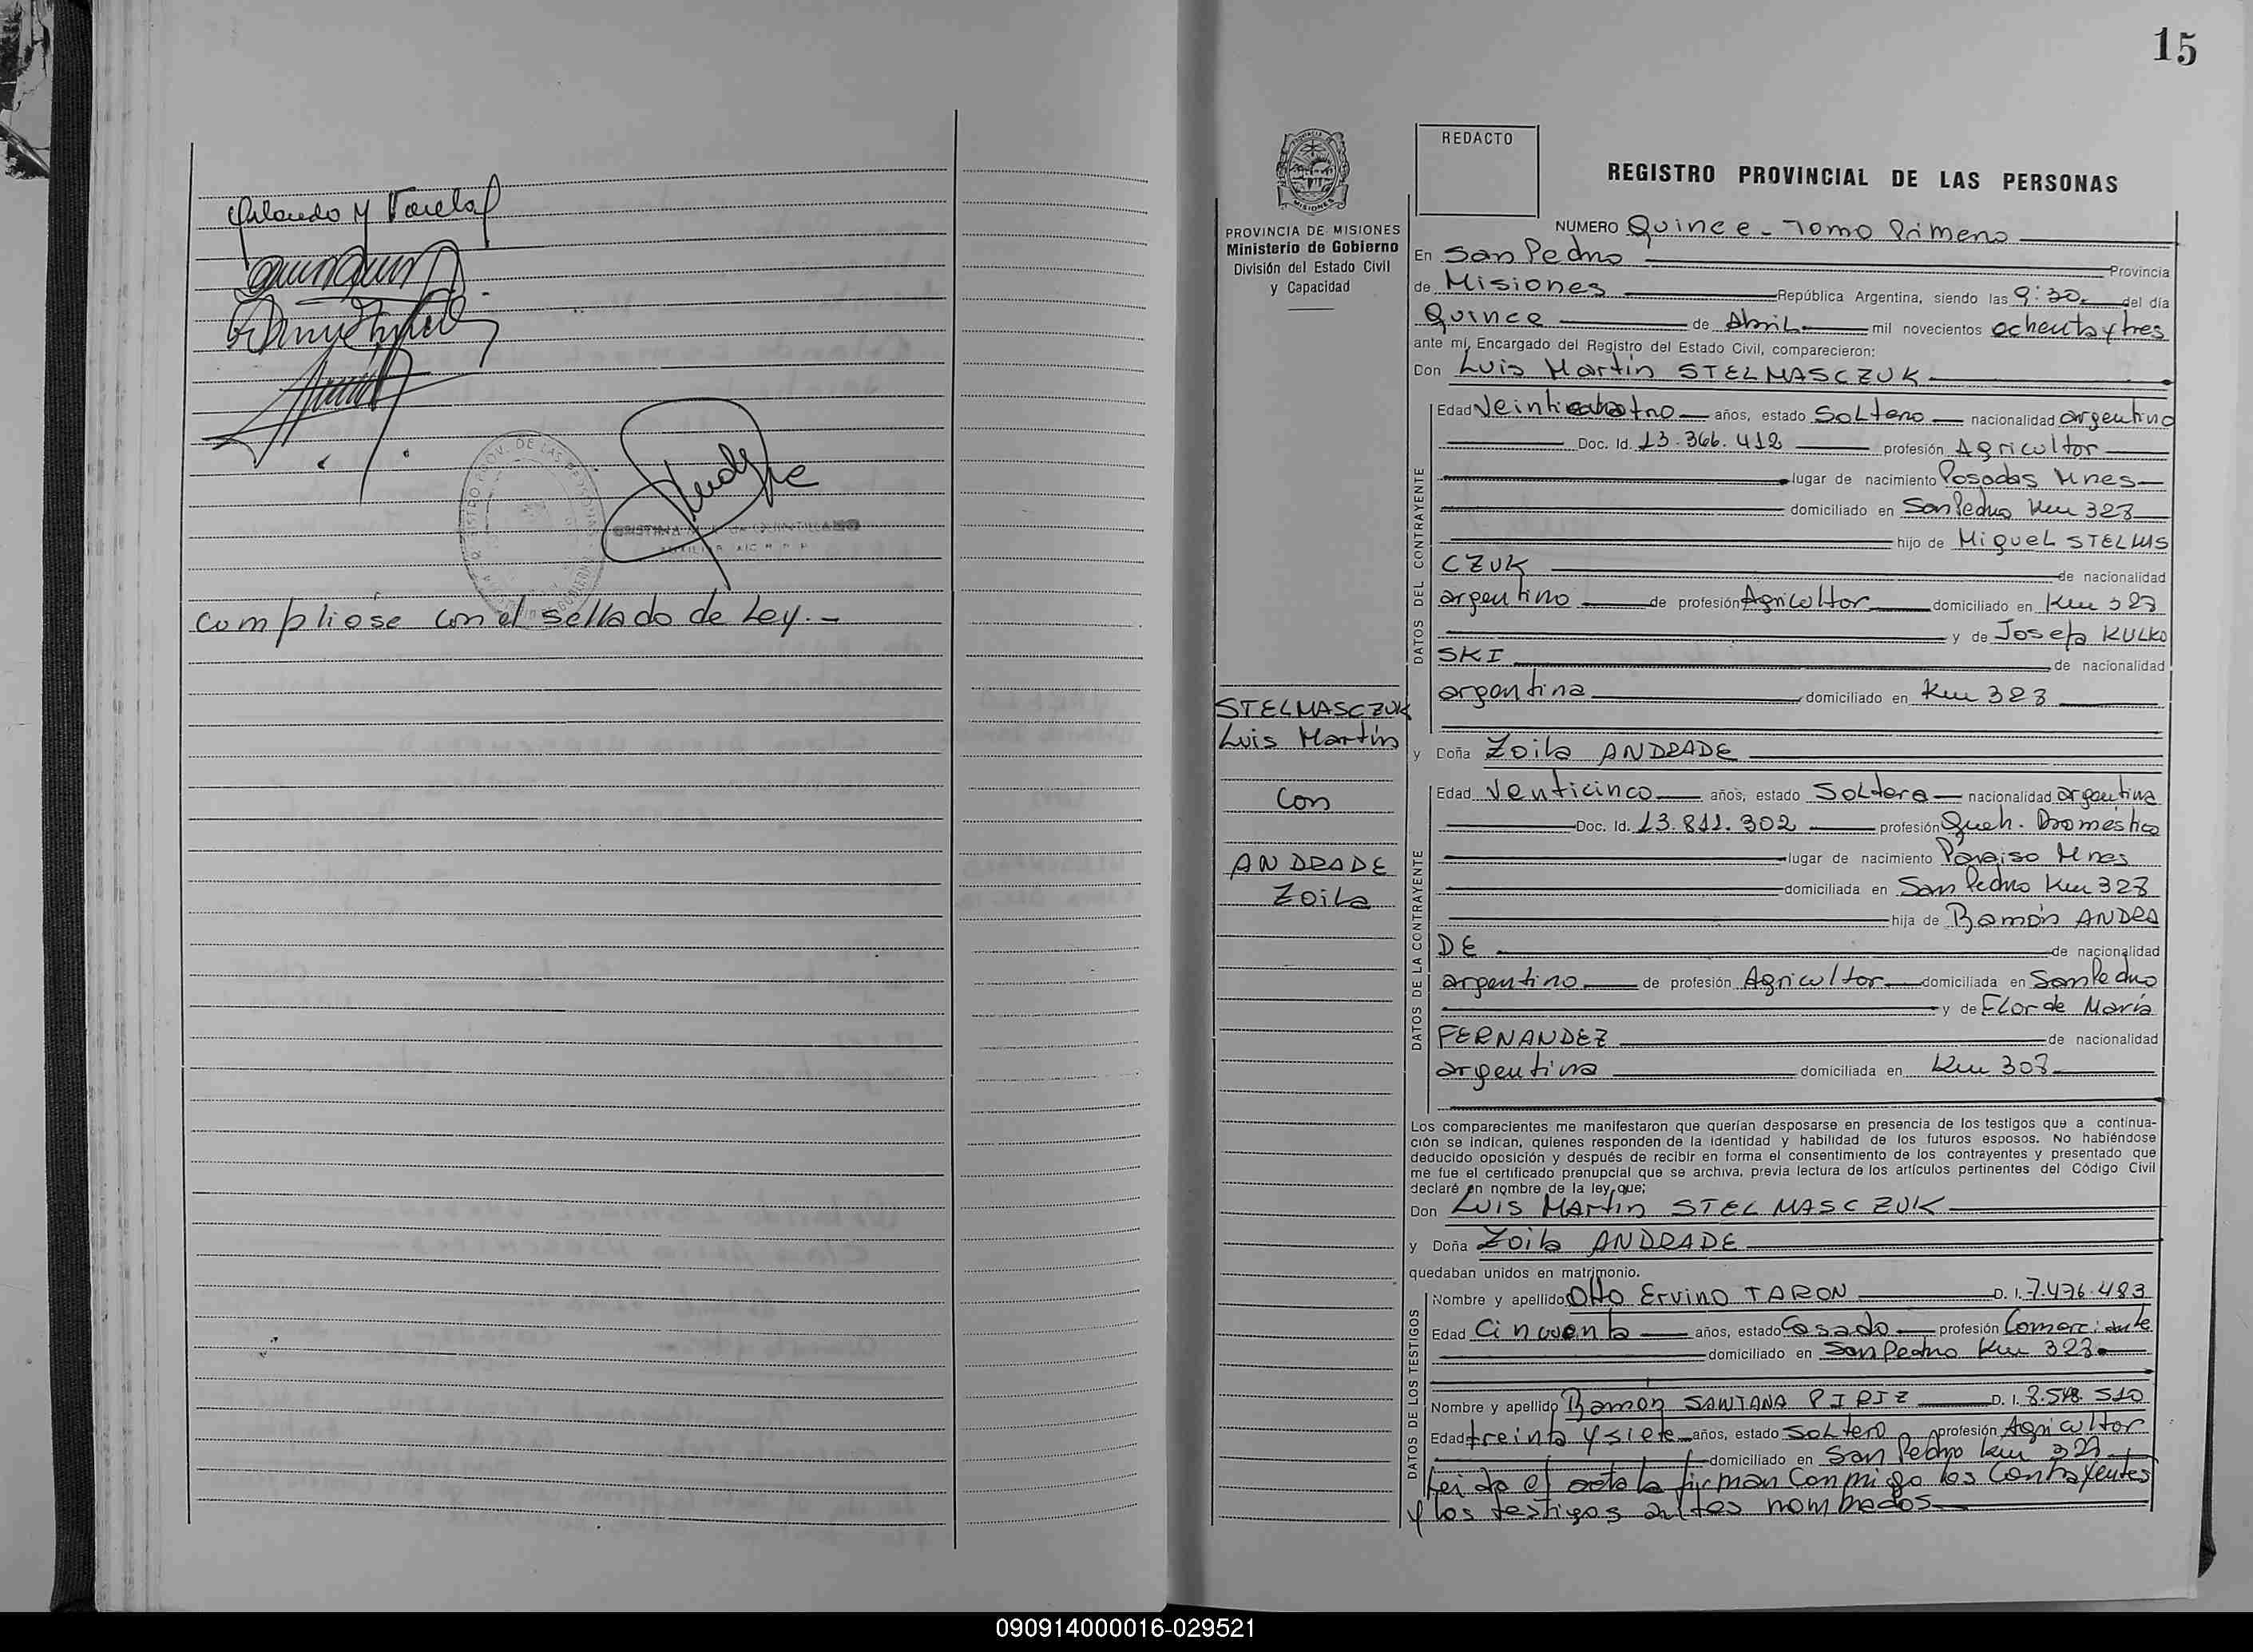 Orlando M Varela
REGISTRO PROV. DE LAS PERSONAS
Cumpliose con el sellado de Ley.-
15
REDACTO
REGISTRO PROVINCIAL DE LAS PERSONAS
PROVINCIA DE MISIONES
Ministerio de Gobierno
División del Estado Civil
y Capacidad
NUMERO Quince - Tomo Primero
En San Pedro Provincia
de Misiones República Argentina, siendo las 9:30. del día
Quince de Abril mil novecientos ochenta y tres
ante mí, Encargado del Registro del Estado Civil, comparecieron:
Don Luis Martín STELMASCZUK
DATOS DEL CONTRAYENTE
Edad Veinticuatro años, estado Soltero nacionalidad argentino
Doc. Id. 13.366.412 profesión Agricultor
lugar de nacimiento Posadas Mnes
domiciliado en San Pedro Km 323
hijo de Miguel STELMS
CZUK de nacionalidad
argentino de profesión Agricultor domiciliado en Km 323
y de Josefa KULKO
SKI de nacionalidad
argentina domiciliado en Km 323
STELMASCZUK
Luis Martín
con
ANDRADE
Zoila
y Doña Zoila ANDRADE
DATOS DE LA CONTRAYENTE
Edad Venticinco años, estado Soltera nacionalidad argentina
Doc. Id. 13.811.302 profesión Queh. Domestico
lugar de nacimiento Paraiso Mnes
domiciliada en San Pedro Km 323
hija de Ramón ANDRA
DE de nacionalidad
argentino de profesión Agricultor domiciliada en San Pedro
y de Flor de María
FERNANDEZ de nacionalidad
argentina domiciliada en Km 303
Los comparecientes me manifestaron que querían desposarse en presencia de los testigos que a continua-
ción se indican, quienes responden de la identidad y habilidad de los futuros esposos. No habiéndose
deducido oposición y después de recibir en forma el consentimiento de los contrayentes y presentado que
me fue el certificado prenupcial que se archiva, previa lectura de los artículos pertinentes del Código Civil
declaré en nombre de la ley que;
Don Luis Martín STELMASCZUK
y Doña Zoila ANDRADE
quedaban unidos en matrimonio.
DATOS DE LOS TESTIGOS
Nombre y apellido Otto Ervino TARON D. I. 7.476.483
Edad Cincuenta años, estado Casado profesión Comerciante
domiciliado en San Pedro Km 323
Nombre y apellido Ramon SANTANA PIRIZ D. I. 8.548.510
Edad treinta y siete años, estado Soltero profesión Agricultor
domiciliado en San Pedro Km 323
Leida el acta la firman conmigo los contrayentes
y los testigos antes nombrados
090914000016-029521